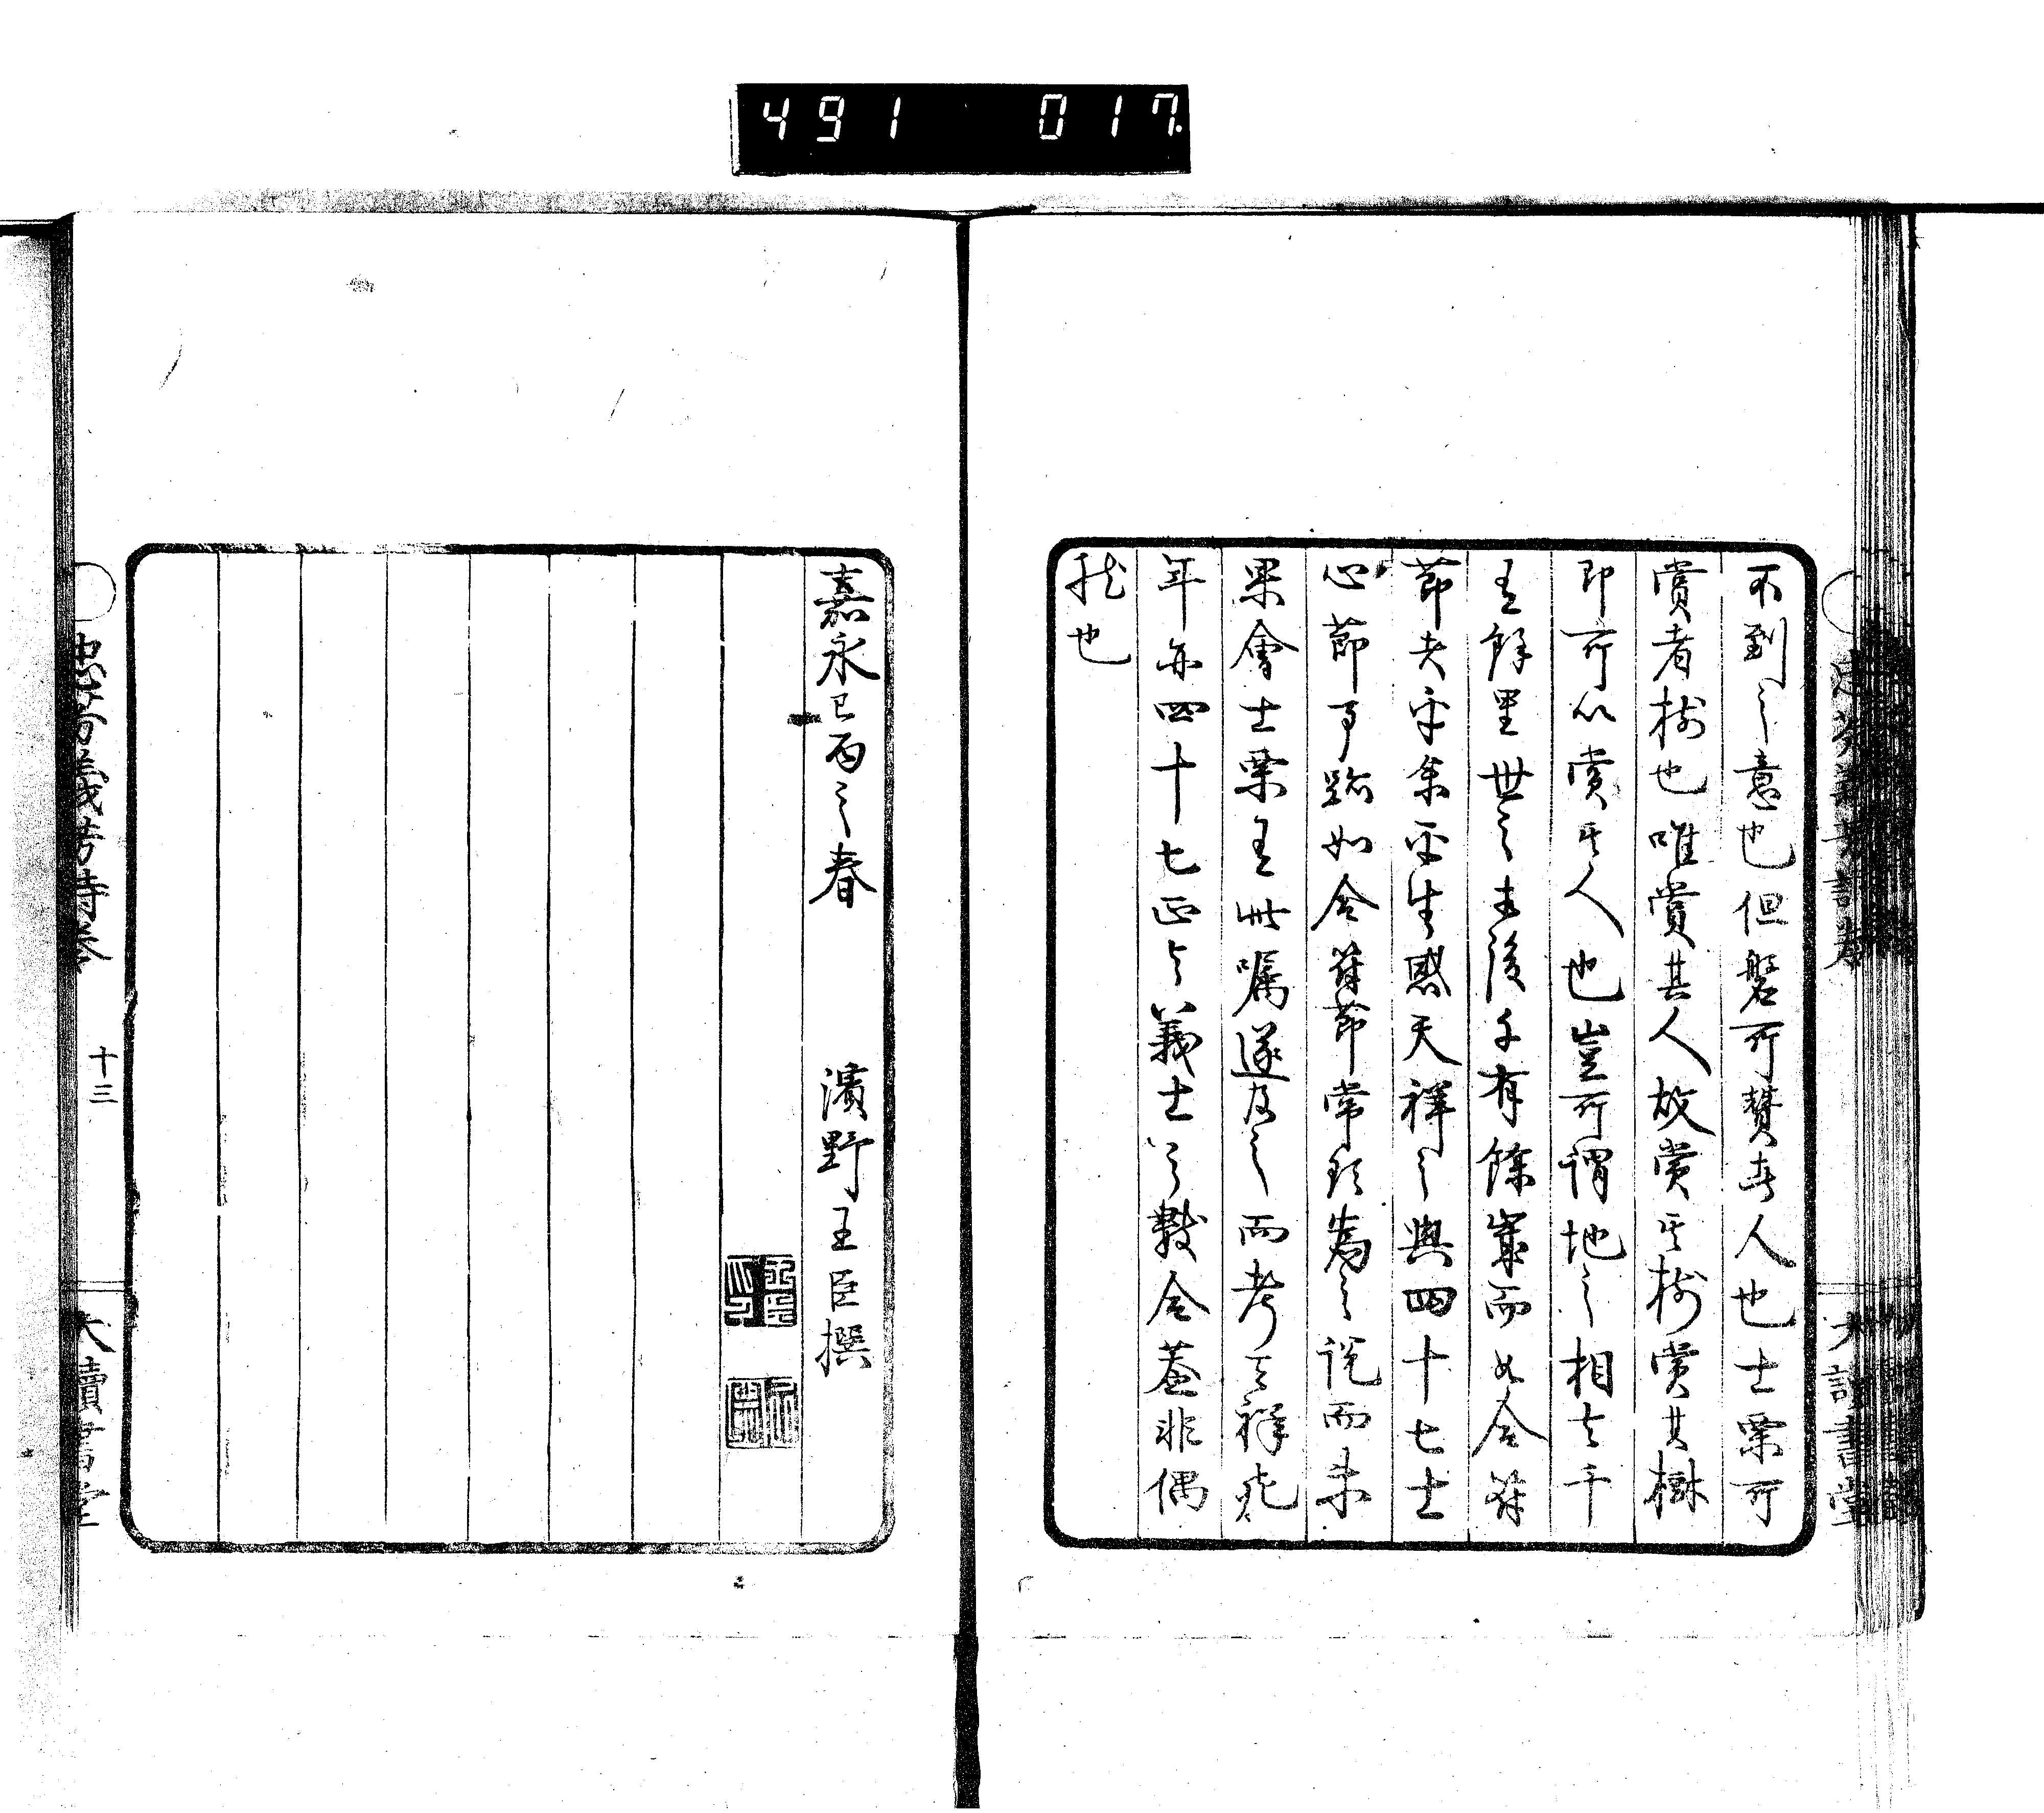 491 017
不到之意也但磐所賛者人也士栗所
賞者樹也唯賞其人故賞其樹賞其樹
即所以賞其人也豈所謂地之相去千
有餘里世之相後千有餘歲而如合符
節者乎余平生感天祥之與四十七士
心節事跡如合符節常欲為之說而未
果會士栗有此嘱遂及之而考天祥死
年亦四十七正与義士之數合蓋非偶
然也
嘉永己酉之春 濱野王臣撰
十三
大讀書堂